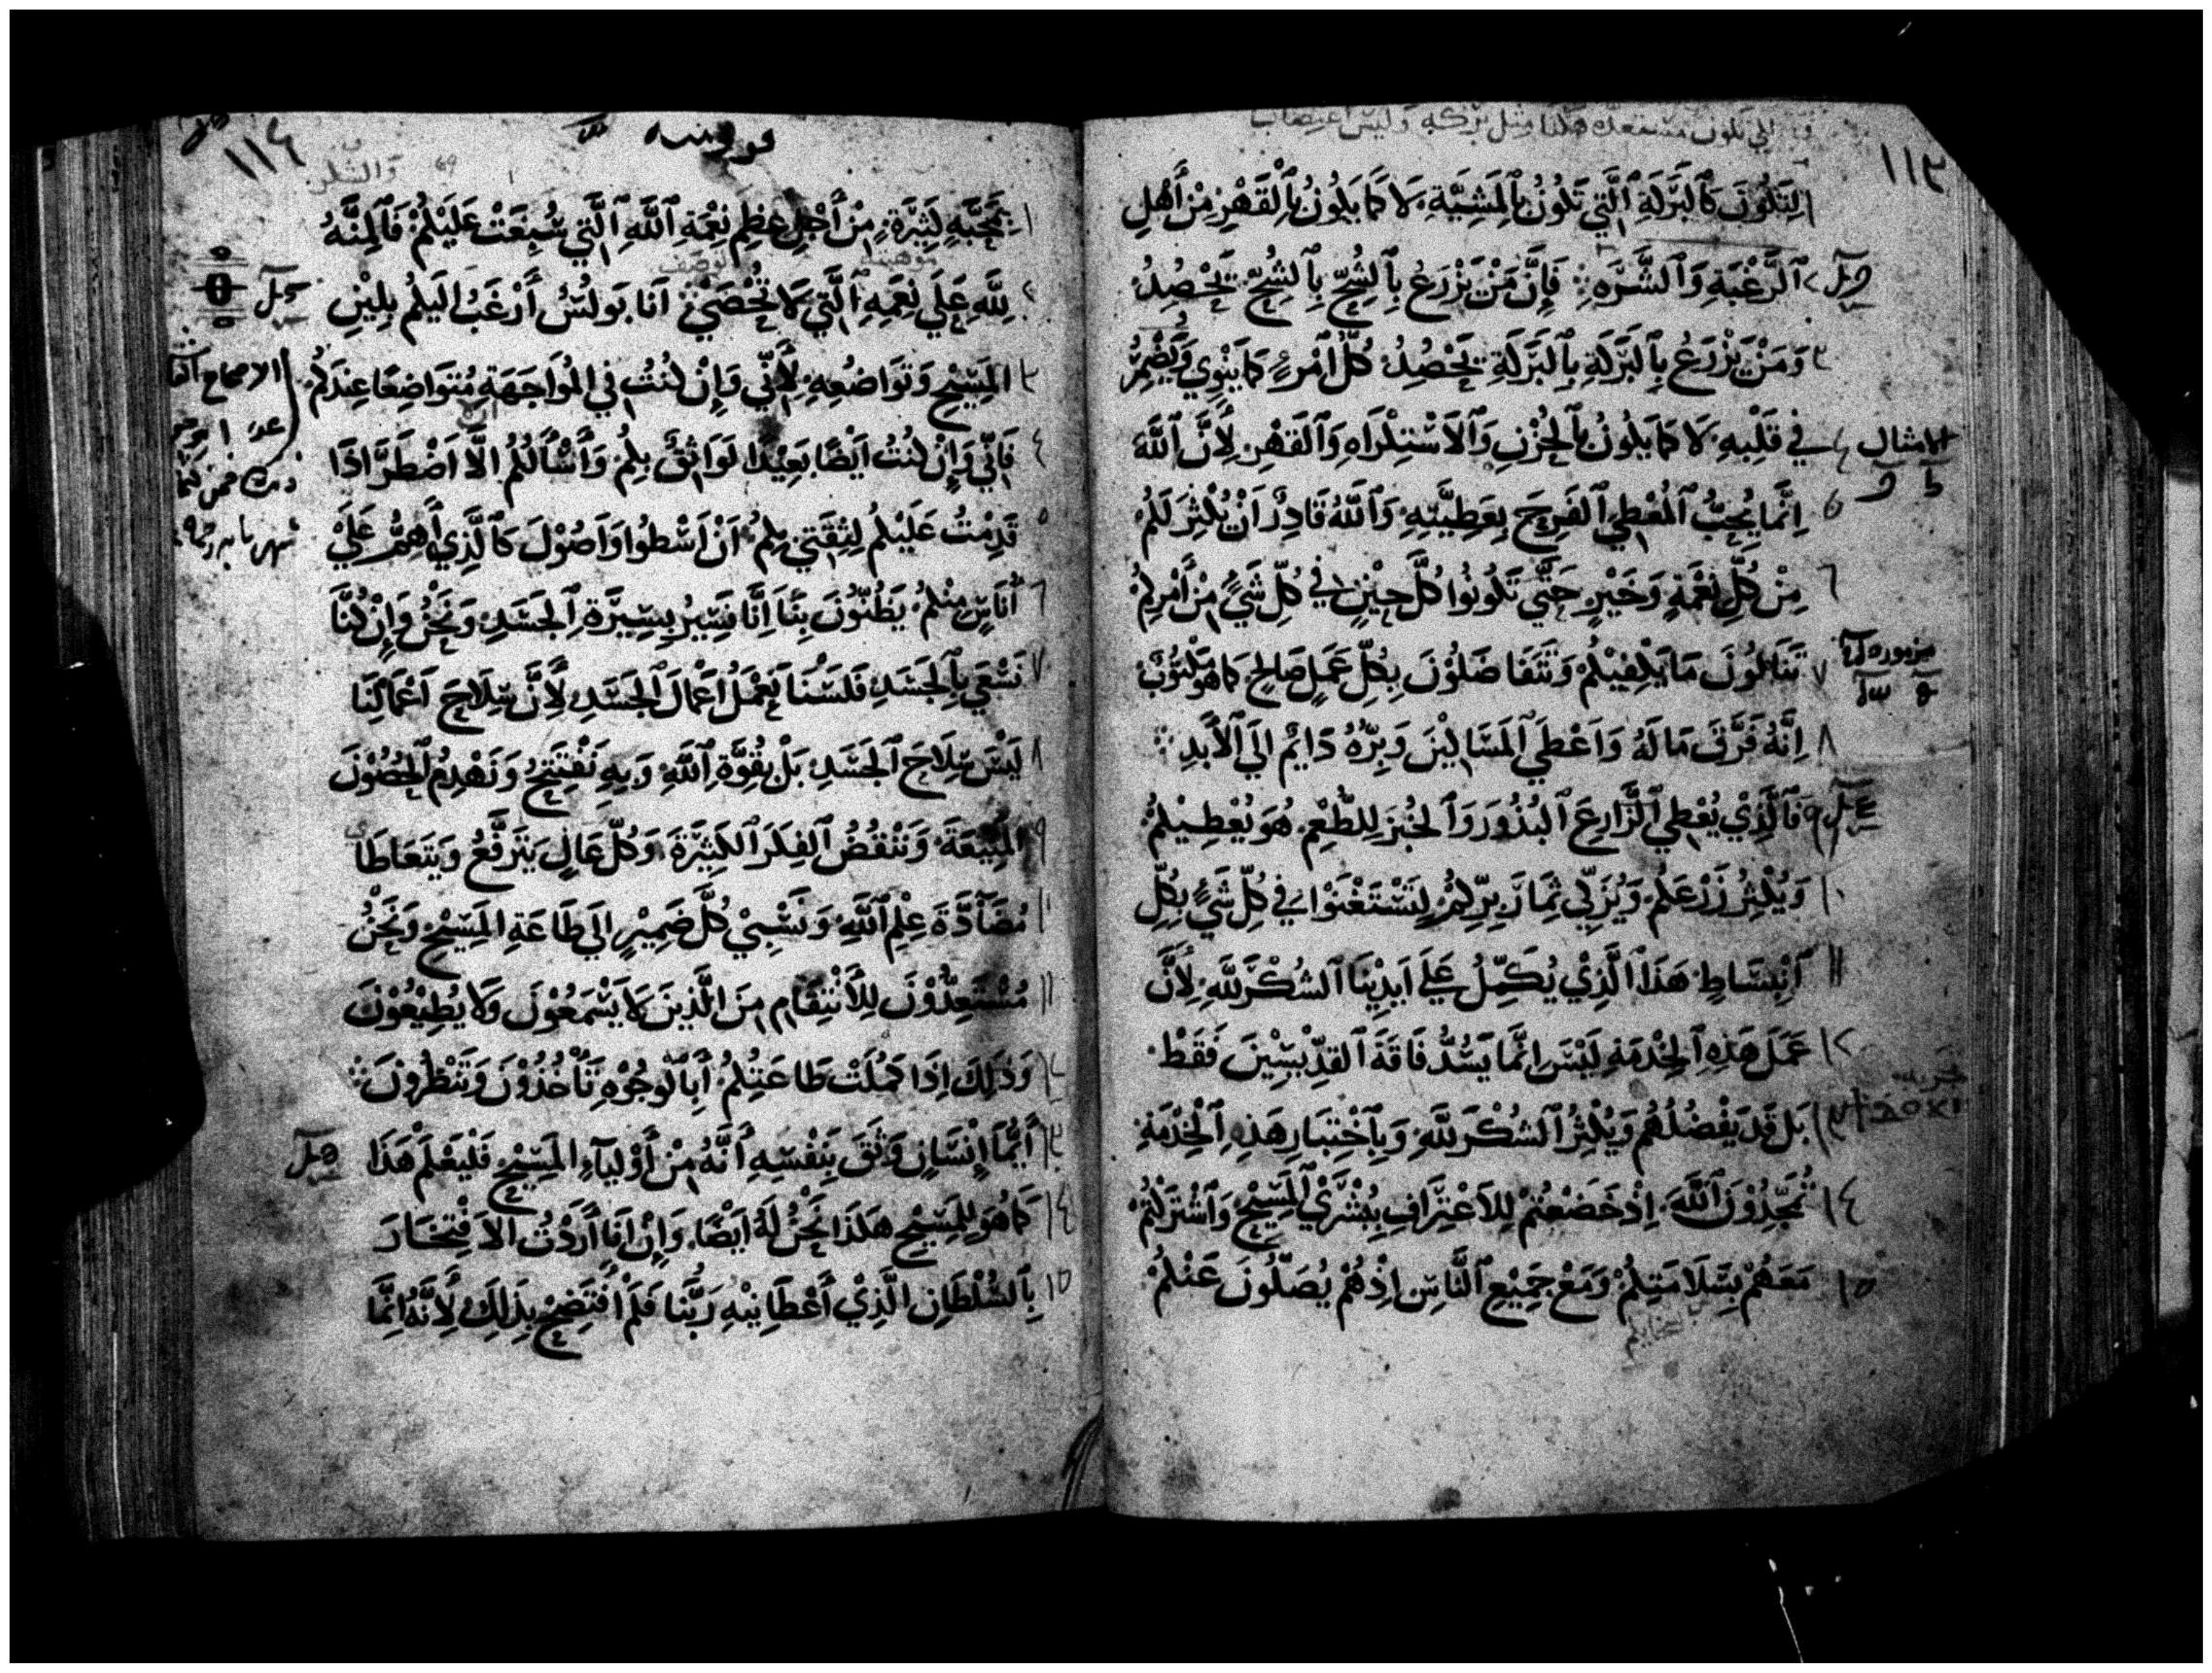 ١١٣
لِتَكُونَ كَٱلبَرَكَةِ ٱلَّتِي تَكُونُ بِٱلمَشِيَّةِ لَا كَمَا يَكُونُ بِٱلْقَهْرِ مِنْ أَهْلِ
ٱلرَّغْبَةِ وَٱلشَّرَهِ فَإِنَّ مَنْ يَزْرَعُ بِٱلشُحِّ بِٱلشُحِّ يَحْصِدُ
وَمَنْ يَزْرَعُ بِٱلبَرَكَةِ بِٱلبَرَكَةِ يَحْصِدُ كُلُّ ٱمْرِءٍ كَمَا يَنْوِي وَيُضْمِرُ
الامثال
فِي قَلْبِهِ لَا كَمَا يَكُونُ بِٱلحُزْنِ وَٱلاَسْتِكْرَاهِ وَٱلقَهْرِ لِأَنَّ ٱللَّهَ
اِنَّمَا يُحِبُّ ٱلمُعْطِي ٱلفَرِحَ بِعَطِيَّتِهِ وَٱللَّهُ قَادِرٌ أَنْ يُكْثِرَ لَكُمْ
مِنْ كُلِّ نِعْمَةٍ وَخَيْرٍ حَتَّى تَكُونُوا كُلَّ حِيْنٍ فِي كُلِّ شَيْءٍ مِنْ أَمْرِكُمْ
تَنَالُونَ مَا يَكْفِيْكُمْ وَتَتَفَاضَلُوْنَ بِكُلِّ عَمَلٍ صَالِحٍ كَمَا هُوَ مَكْتُوْبٌ
اِنَّهُ فَرَّقَ مَا لَهُ وَاَعْطَى ٱلمَسَاكِيْنَ وَبِرُّهُ دَائِمٌ اِلَى ٱلأَبَدِ
فَٱلَّذِيْ يُعْطِي ٱلزَّارِعَ ٱلبُذُوْرَ وَٱلخُبْزَ لِلطُّعْمِ هُوَ يُعْطِيْكُمْ
وَيُكْثِرُ زَرْعَكُمْ وَيُزَكِّي ثِمَارَ بِرِّكُمْ لِتَسْتَغْنَوْا فِي كُلِّ شَيْءٍ بِكُلِّ
ٱنْبِسَاطٍ هَذَا ٱلَّذِيْ يُكَمِّلُ عَلَى اَيدِيْنَا ٱلشُكْرَ لِلَّهِ لِأَنَّ
عَمَلَ هَذِهِ ٱلخِدْمَةِ لَيْسَ اِنَّمَا يَسُدُّ فَاقَةَ ٱلقِدِّيسِيْنَ فَقَطْ
بَل قَد يَفْضُلُهُمْ وَيُكْثِرُ ٱلشُكْرَ لِلَّهِ وَبِٱخْتِبَارِ هَذِهِ ٱلْخِدْمَةِ
تُمَجِّدُوْنَ ٱللَّهَ اِذْ خَضَعْتُمْ لِلاَعْتِرَافِ بِبُشْرَيْ ٱلمَسِيْحِ وَٱشْتَرَكْتُمْ
مَعَهُمْ بِسَلَامَتِكُمْ وَمَعْ جَمِيْعِ ٱلنَّاسِ اِذْ هُمْ يُصَلُّونَ عَنْكُمْ
١١٤
بِمَحَبَّةٍ كَثِيْرَةٍ مِنْ أَجْلِ عِظَمِ نِعْمَةِ ٱللَّهِ ٱلَّتِي سُبِغَتْ عَلَيْكُمْ فَٱلمِنَّةُ
لِلَّهِ عَلَى نِعَمِهِ ٱلَّتِي لَا تُحْصَيْ اَنَا بَولُسُ أَرْغَبُ اِلَيكُمْ بِلِيْنِ
المَسِيْحِ وَتَوَاضُعِهِ لِأَنِّي وَإِنْ كُنْتُ فِي المُوَاجَهَةِ مُتَوَاضِعًا عِنْدَكُمْ
فَاِنِّي وَإِنْ كُنْتُ اَيْضًا بَعِيْدًا لَوَاثِقٌ بِكُمْ وَأَسْأَلُكُمْ اَلَّا اَضْطَرَّ اِذَا
قَدِمْتُ عَلَيْكُمْ لِثِقَتِي بِكُمْ اَنْ اَسْطُوا وَاَصُوْلَ كَٱلَّذِي أَهِمُّ عَلَيَّ
أُنَاسٍ مِنْكُمْ يَظُنُّونَ بِنَا اِنَّا نَسِيْرُ بِسِيْرَةِ ٱلجَسَدِ وَنَحْنُ وَإِنْ كُنَّا
نَسْعَي بِٱلجَسَدِ فَلَسْنَا نَعْمَلُ اَعْمَالَ ٱلجَسَدِ لِأَنَّ سِلَاحَ اَعْمَالِنَا
لَيْسَ سِلَاحَ ٱلجَسَدِ بَلْ بِقُوَّةِ ٱللَّهِ وَبِهِ نَفْتَتِحُ وَنَهْدِمُ ٱلحُصُوْنَ
المَنِيْعَةَ وَنَنْقُضُ ٱلفِكَرَ ٱلكَثِيْرَةَ وَكُلَّ عَالٍ يَتَرَفَّعُ وَيَتَعَاطَا
مُضَآدَّةَ عِلْمِ ٱللَّهِ وَنَسْبِيْ كُلَّ ضَمِيْرٍ اِلَى طَاعَةِ المَسِيْحِ وَنَحْنُ
مُسْتَعِدُّوْنَ لِلأَنْتِقَامِ مِنَ الَّذِينَ لَا يَسْمَعُوْنَ وَلَا يُطِيْعُوْنَ
وَذَلِكَ اِذَا كَمُلَتْ طَاعَتُكُمْ أَبِالْوُجُوْهِ تَأْخُذُوْنَ وَتَنْظُرُوْنَ
أَيُّمَا إِنْسَانٍ وَثَقَ بِنَفْسِهِ أَنَّهُ مِنْ أَوْلِيَآءِ المَسِيْحِ فَلْيَعْلَمْ هَذَا
كَمَا هُوَ لِلمَسِيْحِ هَكَذَا نَحْنُ لَهُ اَيْضًا وَإِنْ اَنَا أَرَدْتُ الاَفْتِخَارَ
بِٱلسُلْطَانِ الَّذِيْ أَعْطَانِيْهِ رَبُّنَا فَلَمْ اَفْتَضِحْ بِذَلِكَ لِأَنَّهُ اِنَّمَا